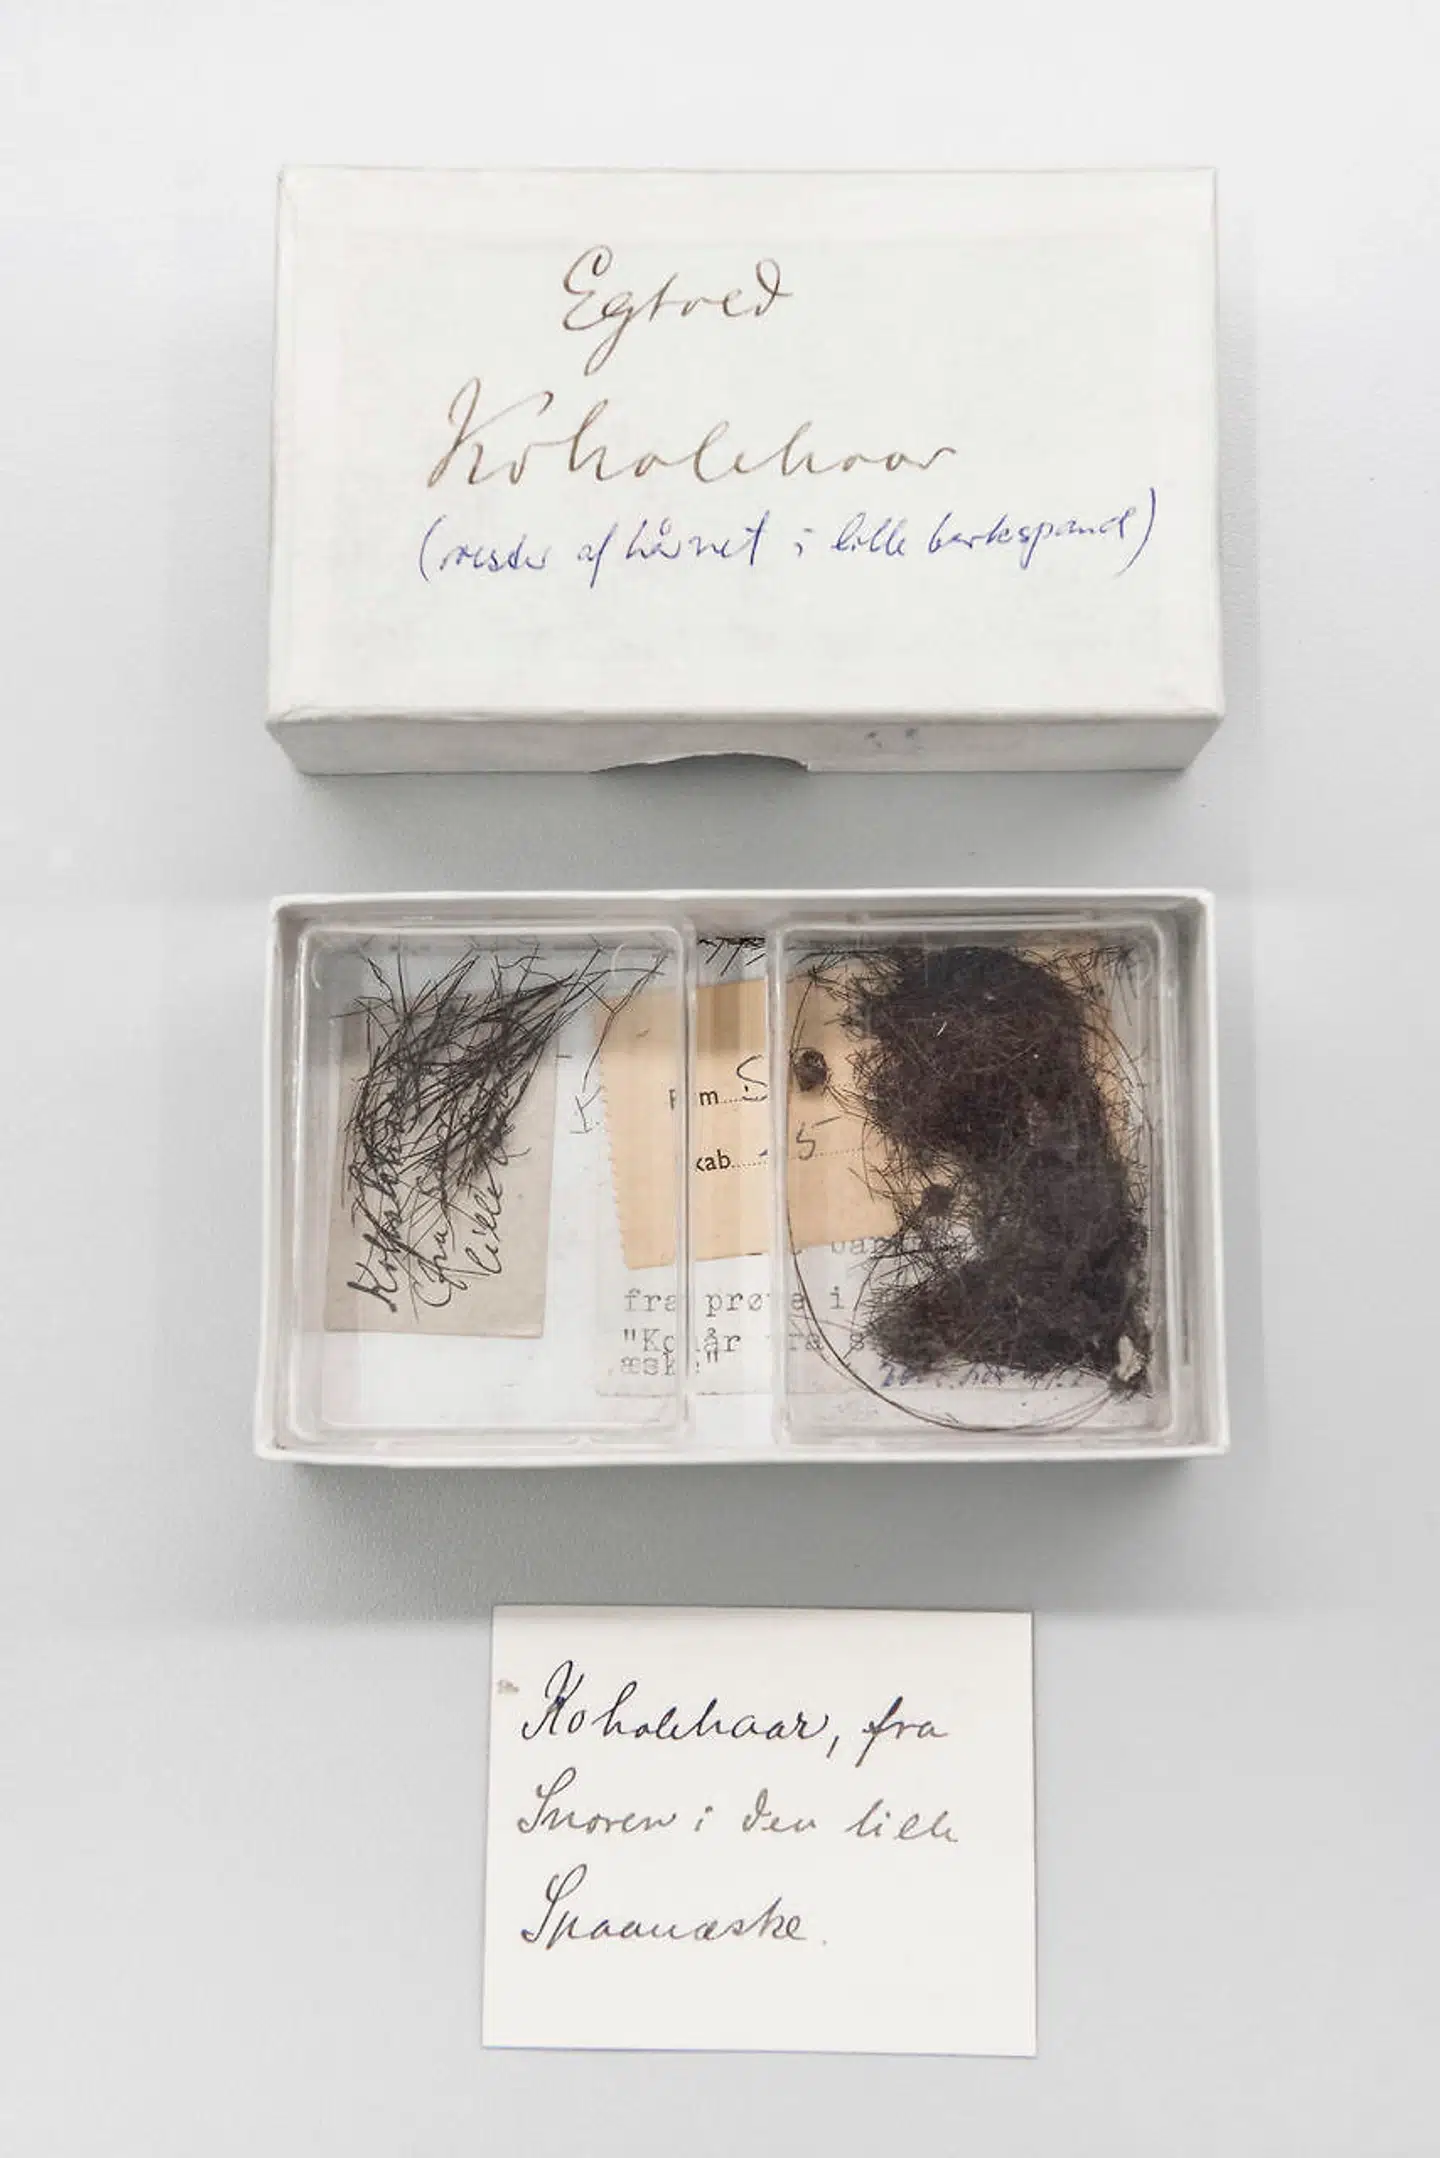 Egtved
Kohalehaar
(rester af hårnet i lille barkspand)
Kohalehaar
fra
lille
Rum
Skab 5
fra prøve i
"Kohår fra
æske"
Kohalehaar, fra
Snoren i den lille
Spaanæske.